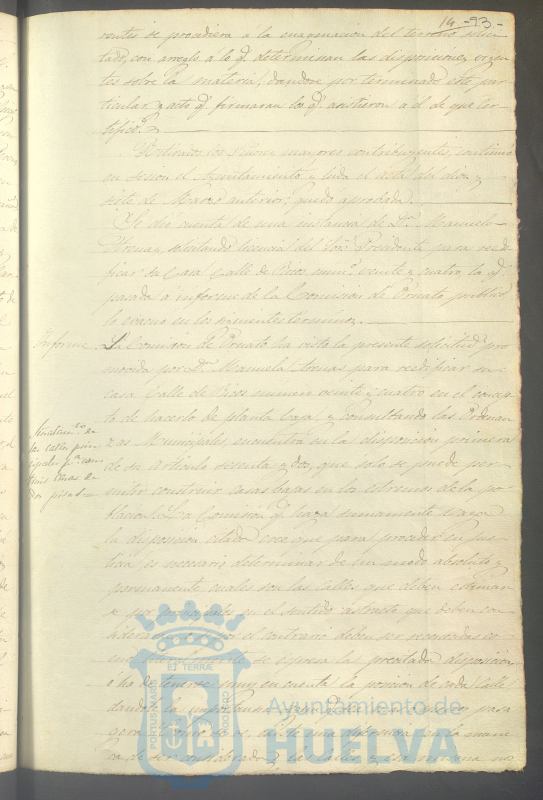 14 - 93.-
rentes se procediera á la enagenacion del terreno solici-
tado, con arreglo á lo q.e determinan las disposiciones vigen-
tes sobre la materia; dandose por terminado este par-
ticular y acto q.e firmaran los q.e asistieron á él de que cer-
tifico.
Retirados los Señores mayores contribuyentes, continuó
en sesion el Ayuntamiento y leida el acta del dia
siete de Marzo anterior, quedó aprobada.
Se dió cuenta de una instancia de D.a Manuela
solicitando licencia del Sor. Presidente para reedi-
ficar su Casa Calle de Ricos num.o veinte y cuatro, la q.e
pasada á informe de la Comision de Ornato publico
lo evacuó en los siguientes terminos.
Informe La Comision de Ornato ha visto la presente solicitud pro
movida por D.a Manuela para reedificar su
casa Calle de Ricos numero veinte y cuatro en el concep-
to de hacerlo de planta baja y consultando las Ordenan
zas Municipales encuentra en la disposicion primera
de su articulo sesenta y dos, que solo se puede per-
mitir construir casas bajas en los estremos de la po-
blacion. La Comision q.e juzga sumamente vaga
la disposicion citada cree que para proceder en jus-
ticia es necesario determinar de un modo absoluto y
permanente cuales son las Calles que deben estimar
se por principales en el sentido astracto que deben con
siderarse por el contrario deben ser recordadas co
se espresa las precitada disposicion
ó ha de tenerse muy en cuenta la posicion de cada Calle
dandole la importancia
de una
ra de ser las calles y esa misma no
de
las calles prin
cipales p.a cons
truir casas de
dos pisos
ET TERRÆ
PORTUS MARIS
CUSTODIO
Ayuntamiento de
HUELVA